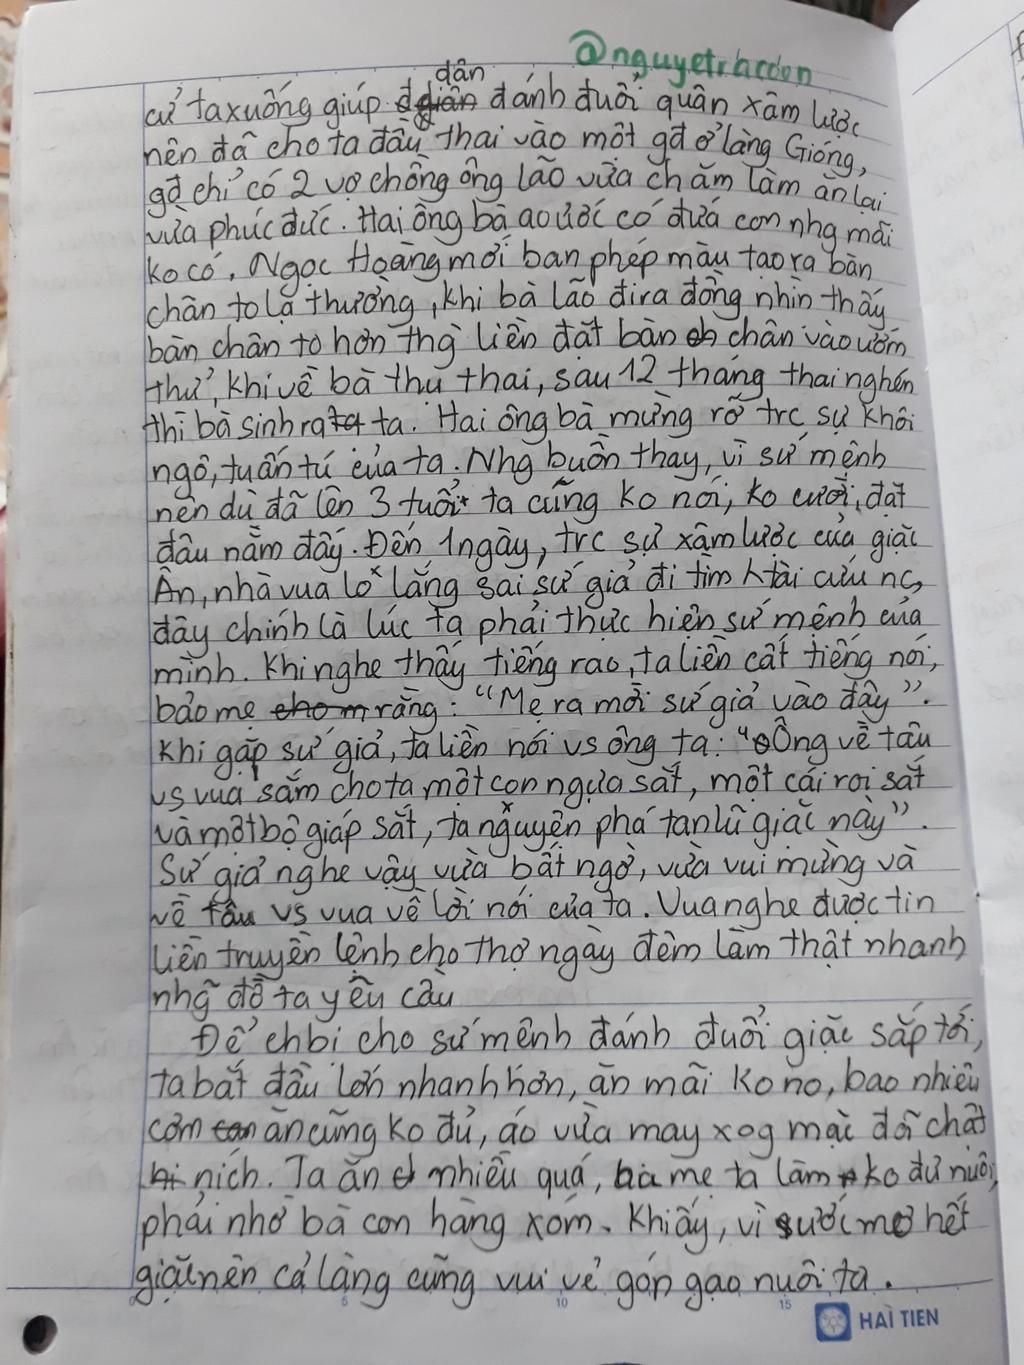 @nguyetraccon
dân
cử ta xuống giúp đánh đuổi quân xâm lược
nên đã cho ta đầu thai vào một gđ ở làng Gióng,
gđ chỉ có 2 vợ chồng ông lão vừa chăm làm ăn lại
vừa phúc đức. Hai ông bà ao ước có đứa con nhg mãi
ko có. Ngọc Hoàng mới ban phép màu tạo ra bàn
chân to lạ thường, khi bà lão đi ra đồng nhìn thấy
bàn chân to hơn thg liền đặt bàn chân vào ướm
thử, khi về bà thụ thai, sau 12 tháng thai nghén
thì bà sinh ra ta. Hai ông bà mừng rỡ trc sự khôi
ngô, tuấn tú của ta. Nhg buồn thay, vì sứ mệnh
nên dù đã lên 3 tuổi ta cũng ko nói, ko cười, đặt
đâu nằm đấy. Đến 1 ngày, trc sự xâm lược của giặc
Ân, nhà vua lo lắng sai sứ giả đi tìm ng tài cứu nc,
đây chính là lúc ta phải thực hiện sứ mệnh của
mình. Khi nghe thấy tiếng rao, ta liền cất tiếng nói,
bảo mẹ rằng: "Mẹ ra mời sứ giả vào đây".
Khi gặp sứ giả, ta liền nói vs ông ta: "Ông về tâu
vs vua sắm cho ta một con ngựa sắt, một cái roi sắt
và một bộ giáp sắt, ta nguyện phá tan lũ giặc này".
Sứ giả nghe vậy vừa bất ngờ, vừa vui mừng và
về tâu vs vua về lời nói của ta. Vua nghe được tin
liền truyền lệnh cho thợ ngày đêm làm thật nhanh
nhg̃ đồ ta yêu cầu
Để chbi cho sứ mệnh đánh đuổi giặc sắp tới,
ta bắt đầu lớn nhanh hơn, ăn mãi ko no, bao nhiêu
cơm ăn cũng ko đủ, áo vừa may xog mặc đã chật
ních. Ta ăn nhiều quá, bà mẹ ta làm ko đủ nuôi,
phải nhờ bà con hàng xóm. Khi ấy, vì ước mơ hết
giặc nên cả làng cũng vui vẻ góp gạo nuôi ta.
5 10 15
HẢI TIẾN